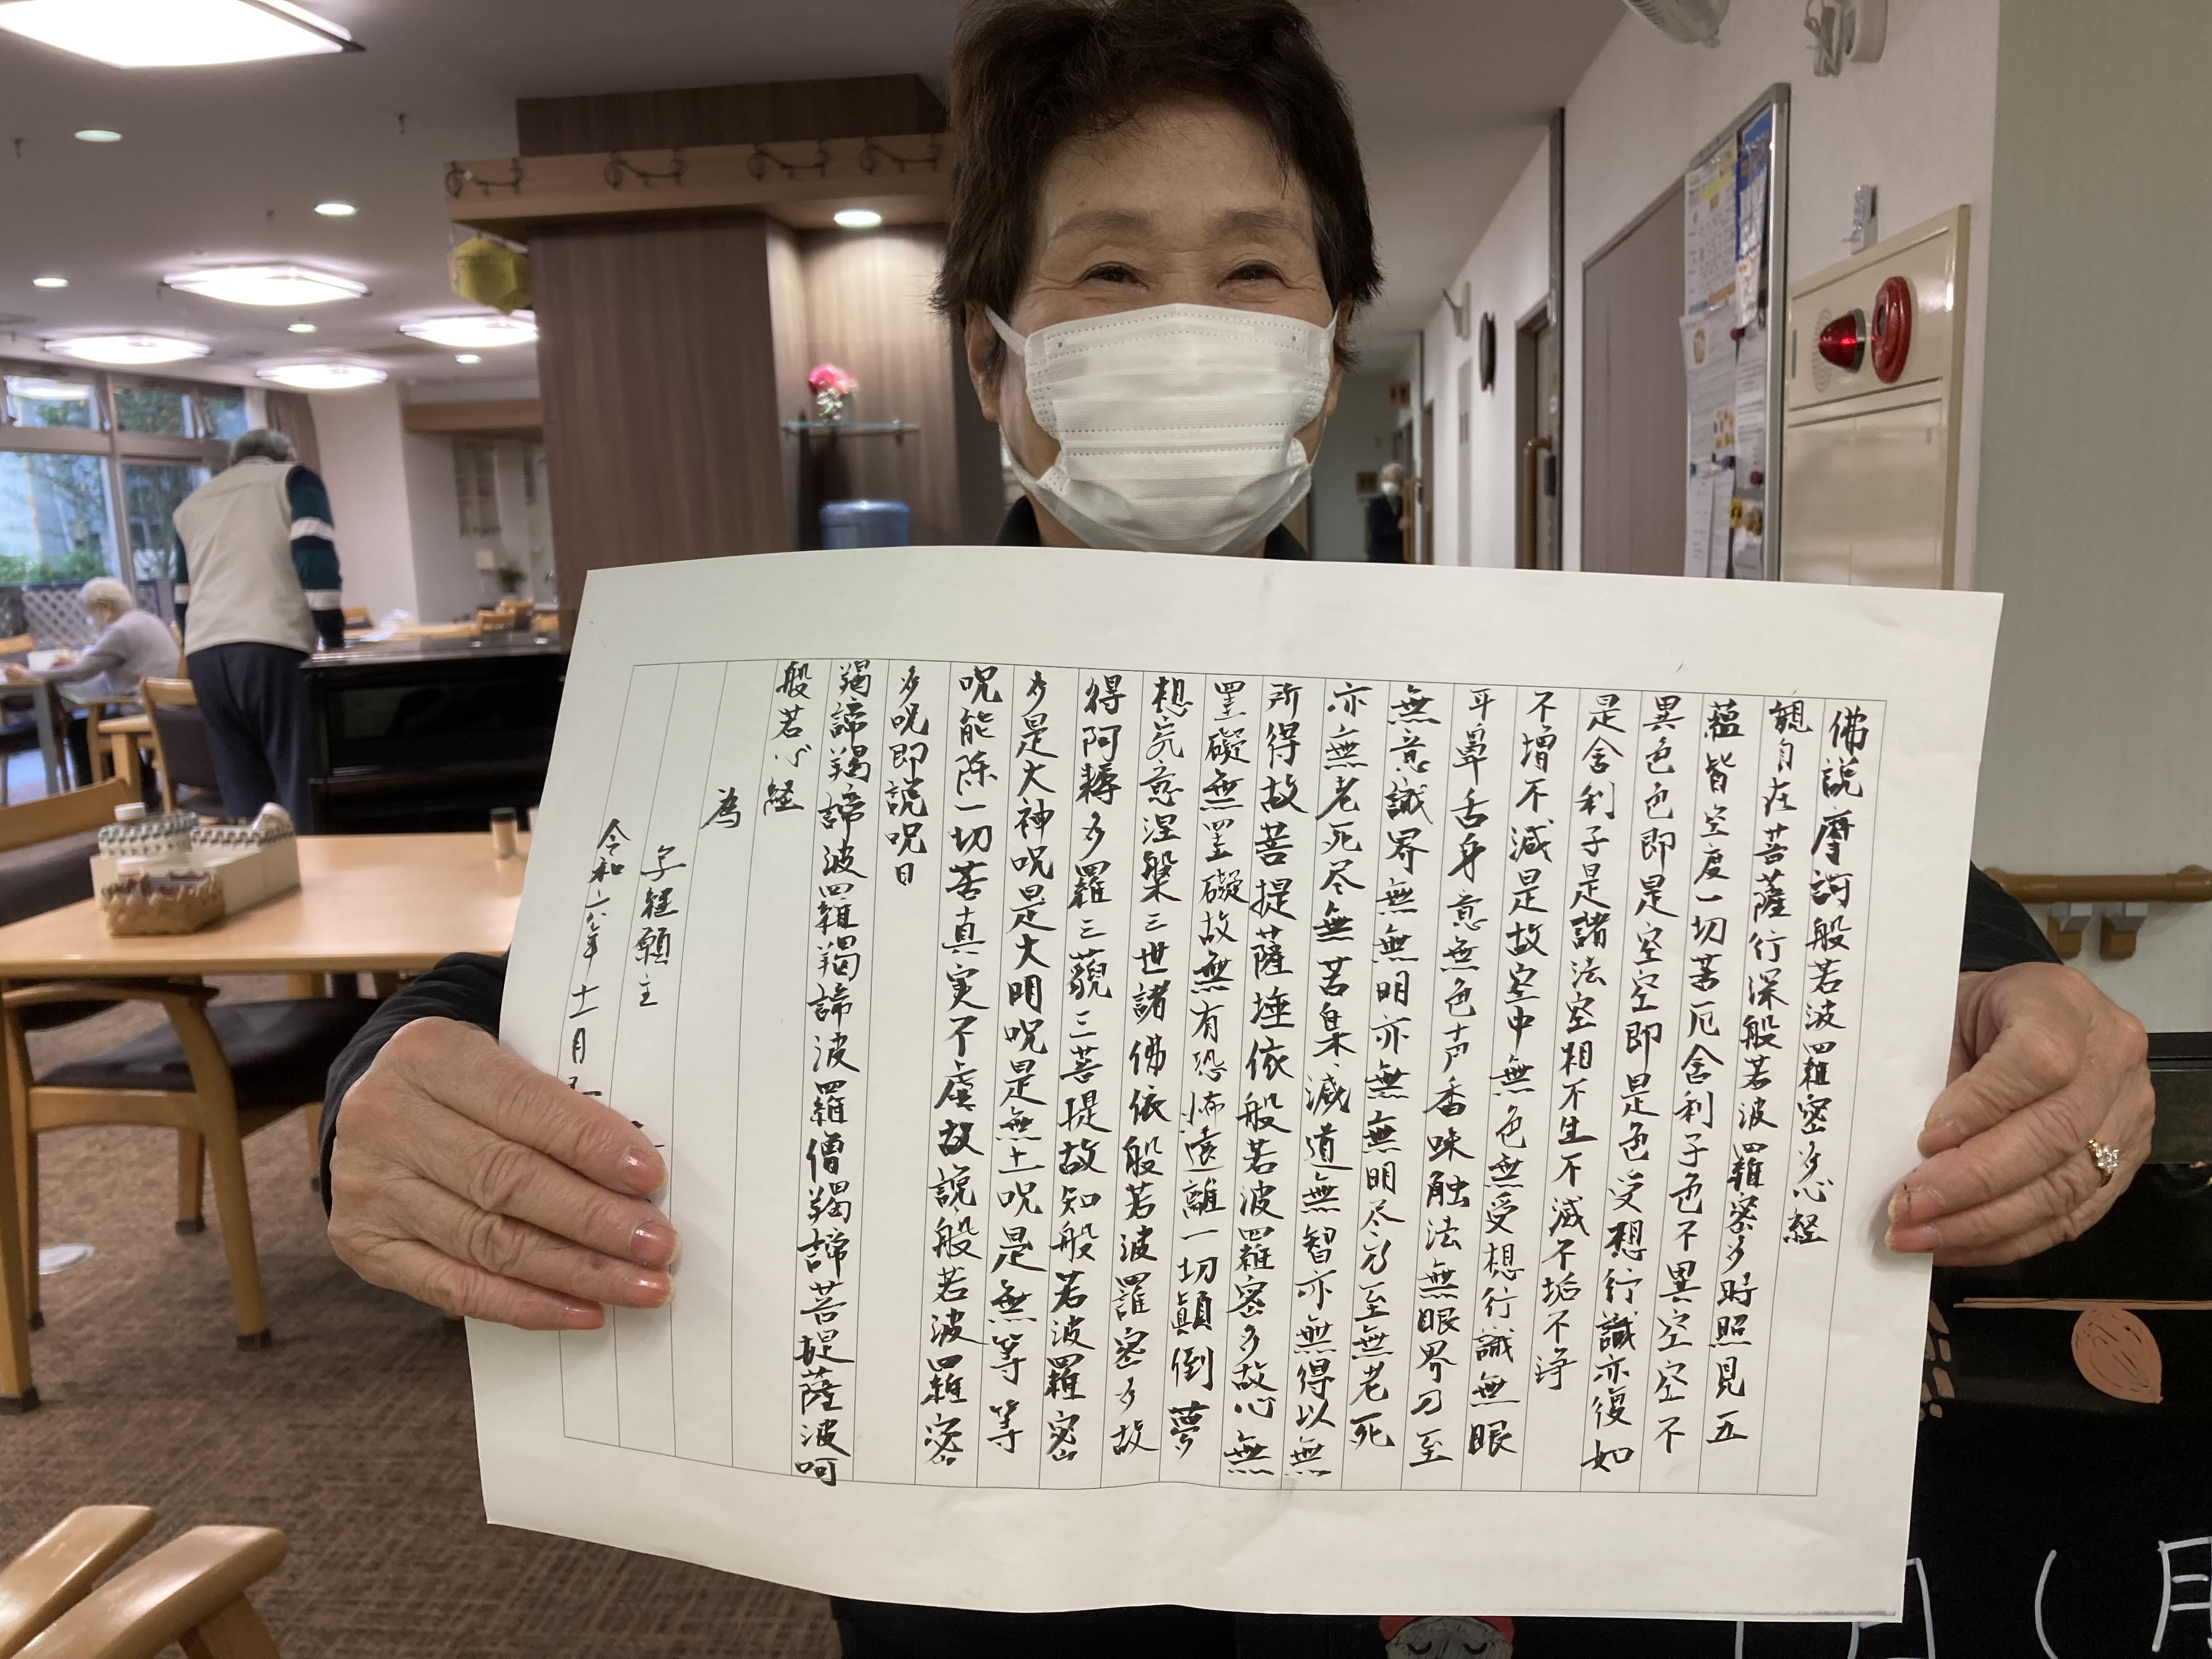 佛説摩訶般若波羅密多心経
観自在菩薩行深般若波羅密多時照見五
蘊皆空度一切苦厄舎利子色不異空空不
異色色即是空空即是色受想行識亦復如
是舎利子是諸法空相不生不滅不垢不浄
不増不減是故空中無色無受想行識無眼
耳鼻舌身意無色声香味触法無眼界乃至
無意識界無無明亦無無明尽乃至無老死
亦無老死尽無苦集滅道無智亦無得以無
所得故菩提薩埵依般若波羅密多故心無
罣礙無罣礙故無有恐怖遠離一切顛倒夢
想究意涅槃三世諸佛依般若波羅密多故
得阿耨多羅三藐三菩提故知般若波羅密
多是大神呪是大明呪是無上呪是無等等
呪能除一切苦真実不虚故説般若波羅密
多呪即説呪曰
羯諦羯諦波羅羯諦波羅僧羯諦菩提薩波呵
般若心経
為
写経願主
令和六年十一月
月